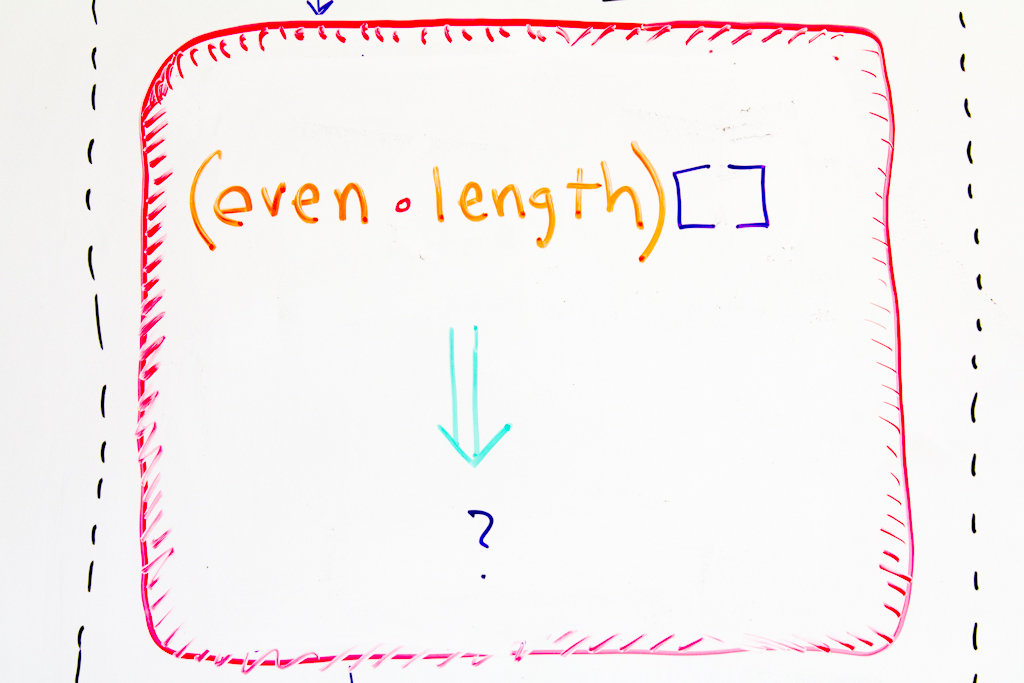 (even . length) []
?